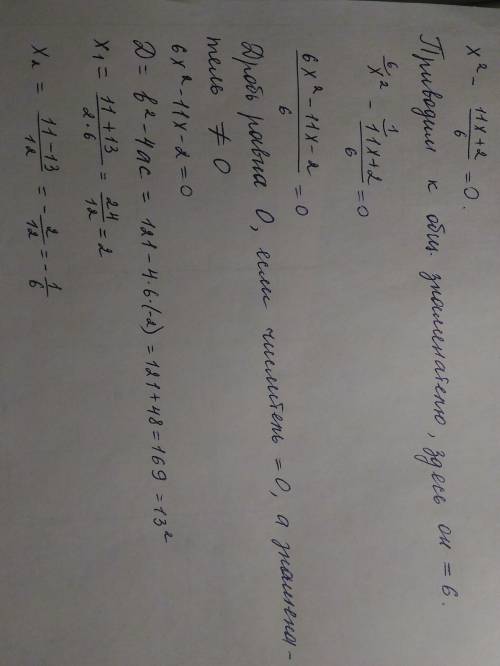 x² - (11x+2)/6 = 0.
Приводим к общ. знаменателю, здесь он = 6.
⁶⁄x² - ¹⁄(11x+2)/6 = 0
(6x² - 11x - 2)/6 = 0
Дробь равна 0, если числитель = 0, а знамена-
тель ≠ 0
6x² - 11x - 2 = 0
D = b² - 4ac = 121 - 4·6·(-2) = 121 + 48 = 169 = 13²
x₁ = (11+13)/(2·6) = 24/12 = 2
x₂ = (11-13)/12 = -2/12 = -1/6